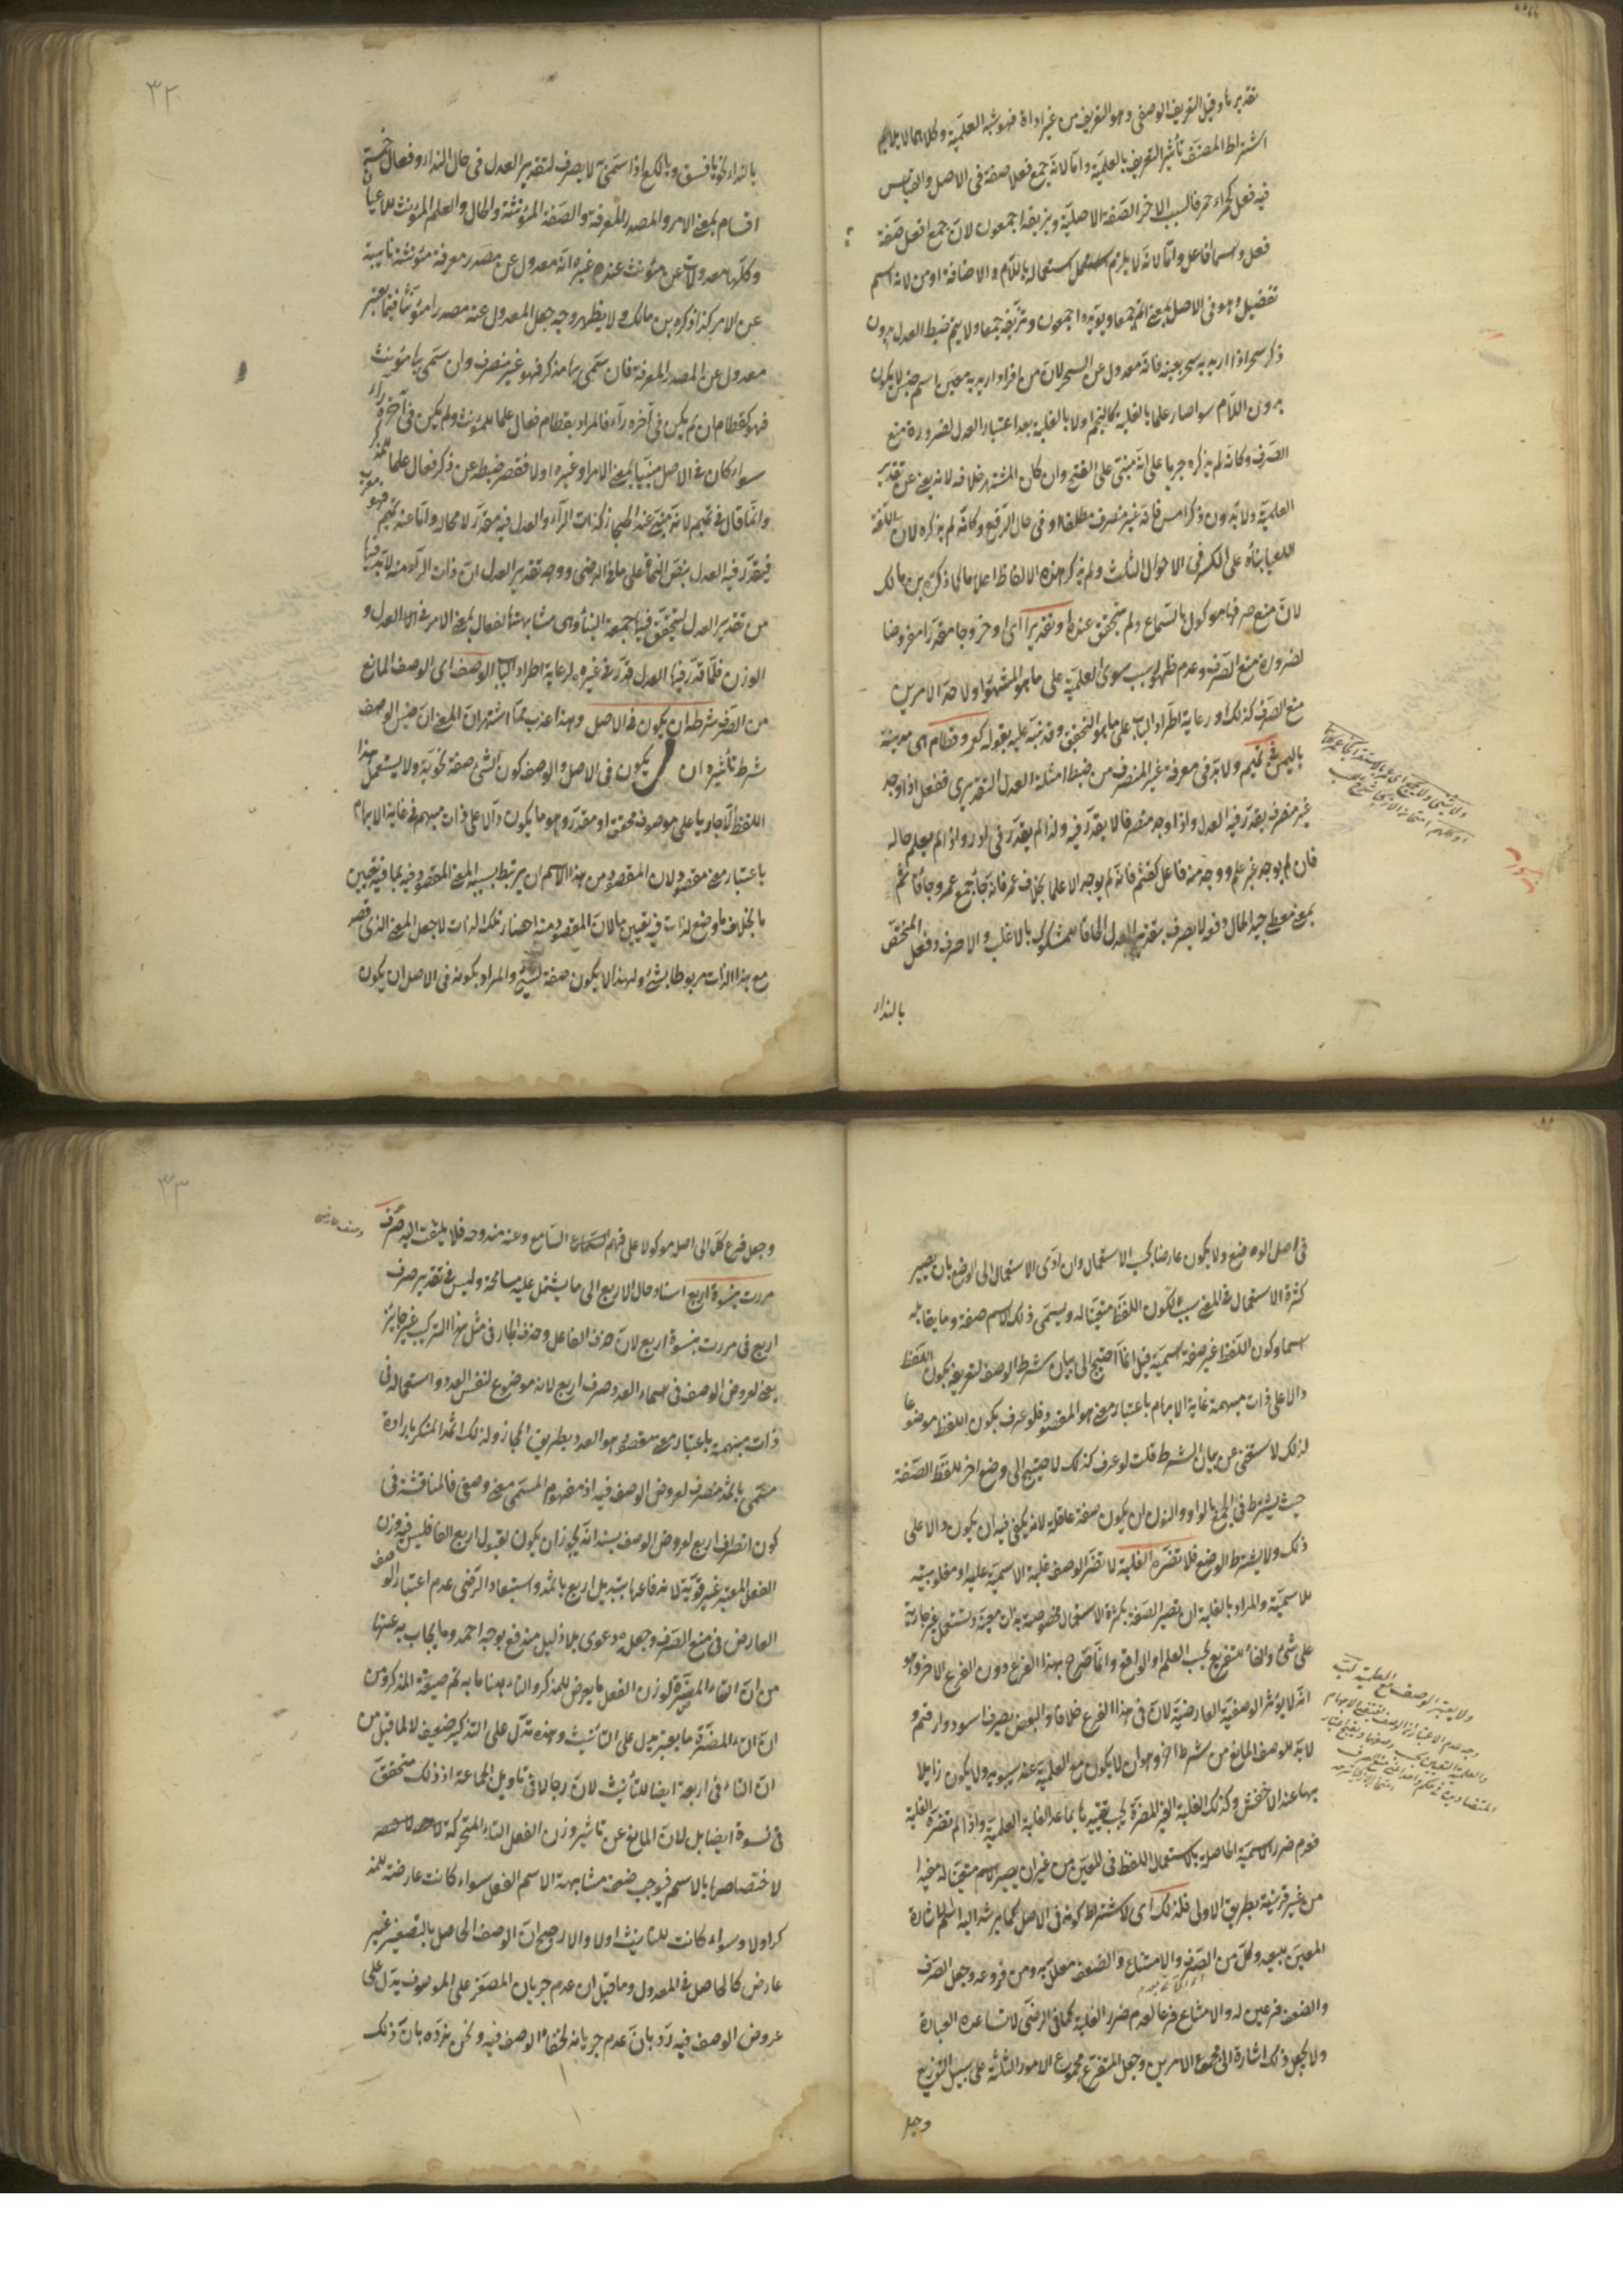 تقديرنا وقيل التعريف الوصفي وهو التعريف من غير اداة فهو شبه العلمية وكلاهما لا يلايم
اشتراط المصنف تأثير التعريف بالعلمية واما لانه جمع فعلاء صفة في الاصل والقياس
فيه فعل كحمراء حمر فالسبب الاخر الصفة الاصلية ويزيفه اجمعون لان جمع افعل صفة
فعل واسما افاعل واما لانه لا يلزم استعماله باللام والاضافة او من لانه اسم
تفضيل وهو في الاصل بمعنى اتم جمعا ويؤيده اجمعون ويزيفه جمعاء ولا يتم ضبط العدل بدون
ذكر سحر اذا اريد به سحر بعينه فانه معدول عن السحر لان من افراد اريد به معين باسم جنس لا يكون
بدون اللام سواء صار علما بالغلبة كالنجم اولا بالغلبة بعد اعتبار العدل لضرورة منع
الصرف وكانه لم يذكره جريا على انه مبني على الفتح وان كان المشتهر خلافه لانه يغني عن تقدير
العلمية ولا بدون ذكر امس فانه غير منصرف مطلقا او في حال الرفع وكانه لم يذكره لان اللغة
العليا بناؤه على الكسر في الاحوال الثلث ولم يذكر هذه الالفاظ اعلاما كما ذكره بن مالك
لان منع صرفها موكول بالسماع ولم يتحقق عنده او تقديرا اي او خروجا مقدرا مفروضا
لضرورة منع الصرف وعدم ظهور سبب سوى العلمية على ما هو المشهور اولاحد الامرين
منع الصرف كذلك او رعاية اطراد الباب على ما هو التحقيق وقد نبه عليه بقوله كعمر وقطام اي مدينة
باليمن في تميم ولا بد في معرفة غير المنصرف من ضبط امثلة العدل التقديري ففعل اذا وجد
غير منصرف يقدر فيه العدل واذا وجد منصرفا لا يقدر فيه ولذا لم يقدر في ادد واذا لم يعلم حاله
فان لم يوجد غير علم ووجد منه فاعل كقثم فانه لم يوجد الا علما بخلاف عمر فانه جاء جمع عمرة وجاء قاثم
بمعنى معطي جيد المال وفعه لا يصرف بتقدير العدل الحاقا للمشكوك بالاغلب والا صرف وفعل المختص
بالنداء
بالنداء نحو يا فسق ويا لكع اذا سمي به لا يصرف لتقدير العدل في حال النداء وفعال خمسة
اقسام بمعنى الامر والمصدر المعرفة والصفة المؤنثة والحال والعلم المؤنث للاعيان
وكلها معدولات عن مؤنث عندهم غيره انه معدول عن مصدر معرفة مؤنثة نايبة
عن الامر كذا ذكره بن مالك ولا يظهر وجه جعل المعدول عنه مصدرا مؤنثا فيما يعتبر
معدول عن المصدر المعرفة فان سمي بها مذكر فهو غير منصرف وان سمي بها مؤنث
فهو كقطام ان لم يكن في آخره راء فالمراد بقطام فعال علما للمؤنث ولم يكن في آخره راء
سواء كان في الاصل مبنيا بمعنى الامر او غيره اولا فقصر ضبطه عن ذكر فعال علما للمذكر
وانما قال في تميم لانه مبني عند الحجاز كذات الراء والعدل فيه مقدر لا محالة واما عند تميم فهو معرب
فيقدر فيه العدل بنص النحاة على ما في الرضي ووجه تقدير العدل ان ذات الراء منه لا بد فيها
من تقدير العدل ليتحقق فيها جهة البناء وهي مشابهتها لفعال بمعنى الامر في العدل و
الوزن فلما قدر فيها العدل قدر في غيره لرعاية اطراد الباب الوصف اي الوصف المانع
من الصرف شرطه ان يكون في الاصل وهذا اعذب مما اشتهر ان المعنى ان جنس الوصف
شرط تأثيره ان يكون في الاصل والوصف كون الشئ صفة نحوية ولا يستعمل هذا
اللفظ الا جاريا على موصوف محقق او مقدر وهو ما يكون دالا على ذات مبهمة في غاية الابهام
باعتبار معنى مقصود لان المقصود من هذا الاسم ان يرتبط بسببه المعنى المقصود فيه بما فيه تعيين
ما بخلاف ما وضع لذات فيه تعيين ما لان المقصود منه احضار تلك الذات لاجل المعنى الذي قصد
مع هذا الذات مربوطا بشئ ولهذا لا يكون صفة لشئ والمراد بكونه في الاصل ان يكون
في اصل الوضع ولا يكون عارضا بحسب الاستعمال وان ادى الاستعمال الى الوضع بان يصير
كثرة الاستعمال في المعنى سببا لكون اللفظ متعينا له ويسمى ذلك الاسم صفة وما يقابله
اسما وكون اللفظ غير صفة اسمية قيل انما احتيج الى بيان شرط الوصف لتعريفه بكون اللفظ
دالا على ذات مبهمة غاية الابهام باعتبار معنى هو المقصود فلو عرف بكون اللفظ موضوعا
لذلك لاستغنى عن بيان الشرط قلت لو عرف كذلك لاحتيج الى وضع اخر للفظ الصفة
حيث يشترط في الجمع بالواو والنون ان يكون صفة عاقلة لانه يكفي فيه ان يكون دالا على
ذلك ولا يشترط الوضع فلا تضره الغلبة لا تضر الوصف غلبة الاسمية عليه او مغلوبيته
للاسمية والمراد بالغلبة ان تصير الصفة بكثرة الاستعمال مخصوصة بذات معينة وتستعمل غير جارية
على شئ والفاء للتفريع بحسب العلم او الواقع وانما صرح بهذا الفرع دون الفرع الاخر وهو
انه لا يؤثر الوصفية العارضية لان في هذا الفرع خلافا والبعض يصرف اسود وارقم و
لا بد للوصف المانع من شرط اخر وهو ان لا يكون مع العلمية عند سيبويه ولا يكون زايلا
بها عند الاخفش وكذلك الغلبة الغير المضرة يجب تقييدها بما عدا الغلبة العلمية واذا لم تضره الغلبة
فعدم ضرر الاسمية الحاصلة باستعمال اللفظ في المعين من غير ان يصير الاسم متعينا له مفيدا
من غير قرينة بطريق الاولى فلذلك اي لاشتراط كونه في الاصل كما يرشد اليه اسم الاشارة
المعين للبعيد وكل من الصرف والامتناع والضعف معلل به ومن فروعه وجعل الصرف
والضعف فرعين له والامتناع فرعا لعدم ضرر الغلبة كما في الرضي لا تساعده العبارة
ولا يجعل ذلك اشارة الى مجموع الامرين وجعل المتفرع مجموع الامور الثلثة على سبيل التوزيع
وجعل
وجعل فرع كل الى اصل موكولا على فهم السامع وعنه مندوحة فلا يلتفت اليه صرف
مررت بنسوة اربع اسناد حال الاربع الى ما يشتمل عليه مسامحة وليس في تقدير صرف
اربع في مررت بنسوة اربع لان حذف الفاعل وحذف الجار في مثل هذا التركيب غير جايز
يعني لعروض الوصف في اسماء العدد صرف اربع لانه موضوع لنفس العدد واستعماله في
ذات مبهمة باعتبار معنى مقصود هو العدد بطريق المجاز ولذلك اثمد المنكر بارادة
مسمى باثمد منصرف لعروض الوصف فيه اذ مفهوم المسمى معنى وصفي فالمناقشة في
كون انصراف اربع لعروض الوصف بسند انه يجوز ان يكون لقبول اربع التاء فليس فيه وزن
الفعل المعتبر غير قوية لاندفاعها بتبديل اربع باثمد واستبعاد الرضي عدم اعتبار الوصف
العارض في منع الصرف وجعله دعوى بلا دليل مندفع بوجه احمد وما يجاب به عنها
من ان التاء المضرة لوزن الفعل ما يعرض للمذكر والتاء ههنا ما به تم صيغة المذكر ومن
ان التاء المضرة ما يعتبر تدل على التأنيث وهذه تدل على التذكير ضعيف لا لما قيل من
ان التاء في اربعة ايضا للتأنيث لان رجالا في تأويل الجماعة اذ ذلك متحقق
في نسوة ايضا بل لان المانع عن تاثير وزن الفعل التاء المتحركة
لاختصاصها بالاسم فيوجب ضعف مشابهة الاسم الفعل سواء كانت عارضة للمذ
كر اولا وسواء كانت للتانيث اولا والارجح ان الوصف الحاصل بالتصغير غير
عارض كالحاصل في المعدول وما قيل ان عدم جريان المصغر على الموصوف يدل على
عروض الوصف فيه رد بان عدم جريانه لخفاء الوصف فيه ونحن نرده بان ذلك